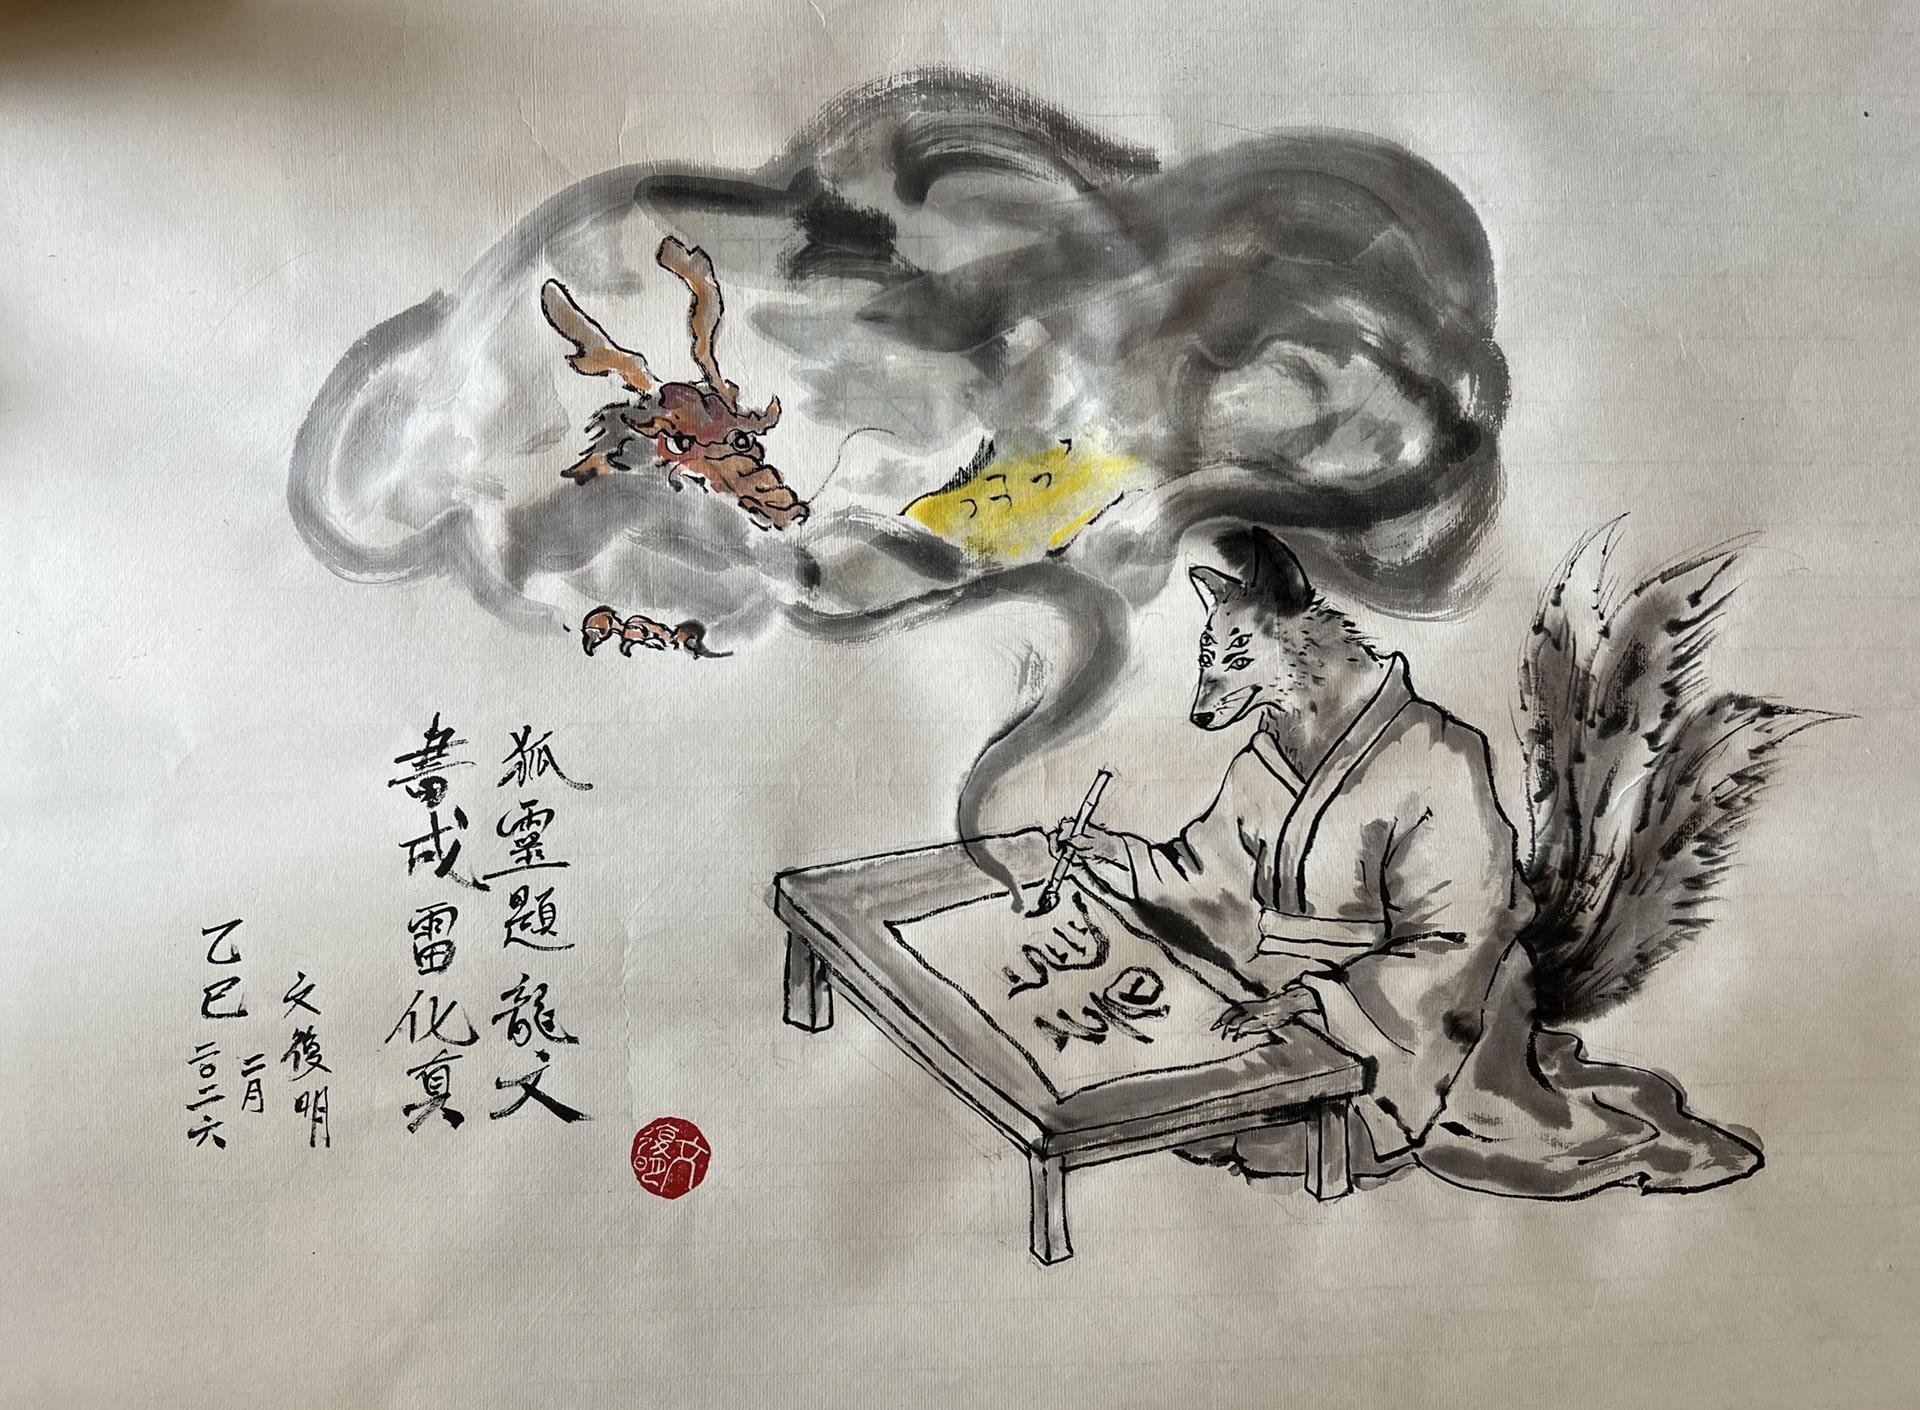 狐靈題龍文
書成雷化真
文復明
二月
乙巳二〇二六
文復明